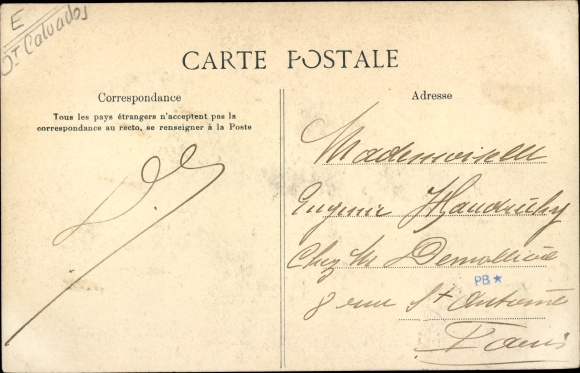 E
Dt Calvados
CARTE POSTALE
Correspondance
Tous les pays étrangers n'acceptent pas la
correspondance au recto, se renseigner à la Poste
Adresse
Mademoiselle
Eugénie
Chez Mr Demollière
PB ★
8 rue St Antoine
Paris